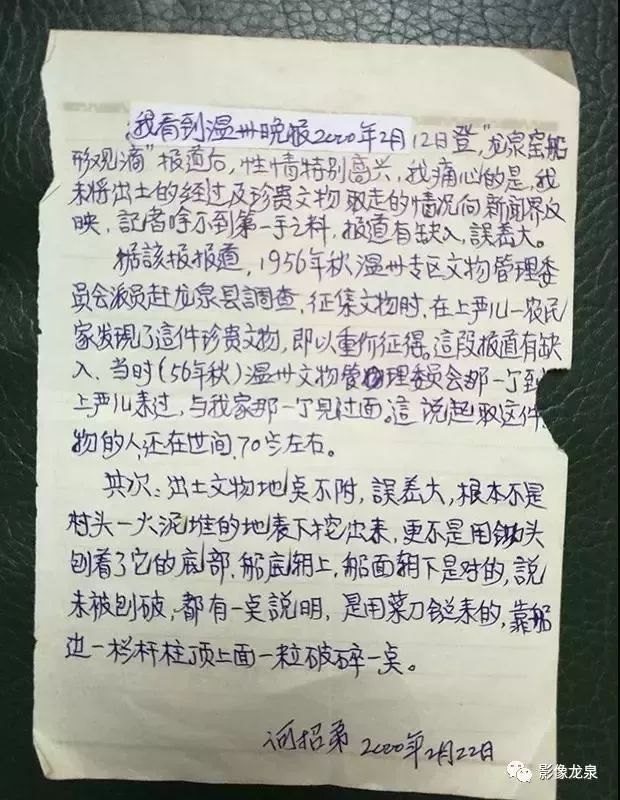 我看到温州晚报2020年2月12日登,"龙泉窑船
形观滴"报道后,性情特别高兴,我痛心的是,我
未将出土的经过及珍贵文物取走的情况向新闻界反
映,記者哮不到第一手之料,报道有缺入,誤差大。
据該报报道,1956年秋温州专区文物管理委
员会派员赶龙泉县調查,征集文物时,在上严儿一农民
家发现了這件珍贵文物,即以重价征得。這段报道有缺
入、当时(56年秋)温州文物管理委员会那一个到
上严儿来过,与我家那一个見过面。這说起取这件
物的人,还在世间,70岁左右。
其次:出土文物地点不附,誤差大,根本不是
村头一大泥堆的地表下挖出来,更不是用锄头
刨着了它的底部,船底朝上,船面朝下是对的,説
未被刨破,都有一点説明,是用菜刀 来的,靠船
边一栏杆柱顶上面一粒破碎一点。
招弟 2020年2月22日
影像龙泉